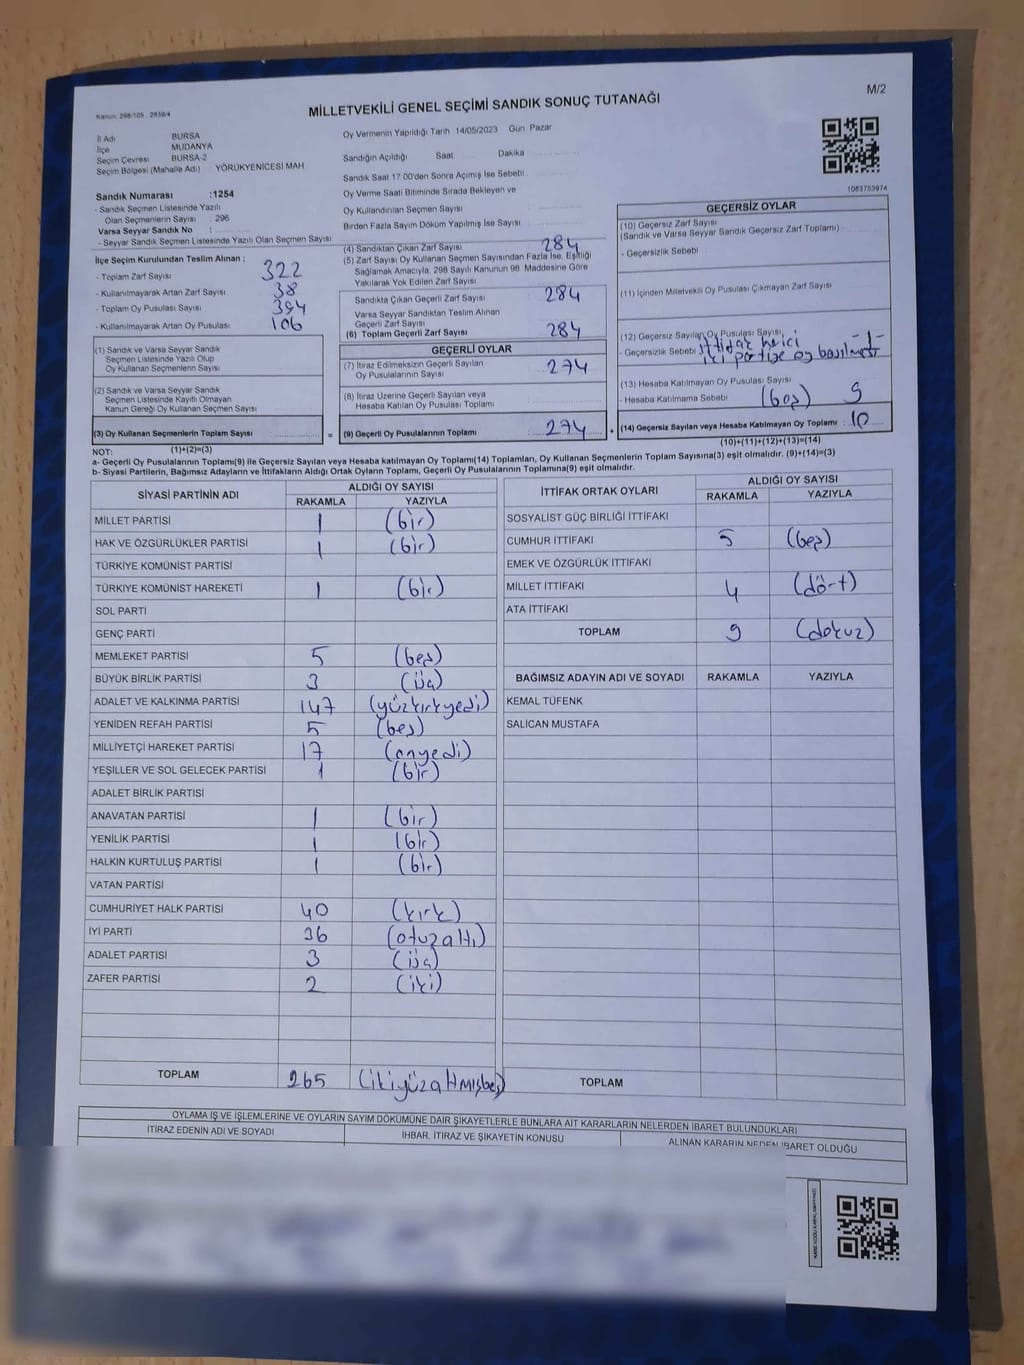 M/2
Kanun: 298/105 2839/4
MİLLETVEKİLİ GENEL SEÇİMİ SANDIK SONUÇ TUTANAĞI
İl Adı BURSA
İlçe MUDANYA
Seçim Çevresi BURSA-2
Seçim Bölgesi (Mahalle Adı) YÖRÜKYENİCESİ MAH
Sandık Numarası :1254
- Sandık Seçmen Listesinde Yazılı
Olan Seçmenlerin Sayısı : 296
Varsa Seyyar Sandık No :
- Seyyar Sandık Seçmen Listesinde Yazılı Olan Seçmen Sayısı
İlçe Seçim Kurulundan Teslim Alınan ;
- Toplam Zarf Sayısı 322
- Kullanılmayarak Artan Zarf Sayısı 38
- Toplam Oy Pusulası Sayısı 394
- Kullanılmayarak Artan Oy Pusulası 106
(1) Sandık ve Varsa Seyyar Sandık
Seçmen Listesinde Yazılı Olup
Oy Kullanan Seçmenlerin Sayısı
(2) Sandık ve Varsa Seyyar Sandık
Seçmen Listesinde Kayıtlı Olmayan
Kanun Gereği Oy Kullanan Seçmen Sayısı
(3) Oy Kullanan Seçmenlerin Toplam Sayısı =
Oy Vermenin Yapıldığı Tarih 14/05/2023 Gün Pazar
Sandığın Açıldığı Saat Dakika
Sandık Saat 17 00'den Sonra Açımış İse Sebebi
Oy Verme Saati Bitiminde Sırada Bekleyen ve
Oy Kullandırılan Seçmen Sayısı
Birden Fazla Sayım Döküm Yapılmış İse Sayısı
(4) Sandıktan Çıkan Zarf Sayısı 284
(5) Zarf Sayısı Oy Kullanan Seçmen Sayısından Fazla İse, Eşitliği
Sağlamak Amacıyla, 298 Sayılı Kanunun 98 Maddesine Göre
Yakılarak Yok Edilen Zarf Sayısı
Sandıkta Çıkan Geçerli Zarf Sayısı 284
Varsa Seyyar Sandıktan Teslim Alınan
Geçerli Zarf Sayısı
(6) Toplam Geçerli Zarf Sayısı 284
GEÇERLİ OYLAR
(7) İtiraz Edilmeksizin Geçerli Sayılan
Oy Pusulalarının Sayısı 274
(8) İtiraz Üzerine Geçerli Sayılan veya
Hesaba Katılan Oy Pusulası Toplamı
(9) Geçerli Oy Pusulalarının Toplamı 274 +
1083753974
GEÇERSİZ OYLAR
(10) Geçersiz Zarf Sayısı
(Sandık ve Varsa Seyyar Sandık Geçersiz Zarf Toplamı)
- Geçersizlik Sebebi
(11) İçinden Milletvekili Oy Pusulası Çıkmayan Zarf Sayısı
(12) Geçersiz Sayılan Oy Pusulası Sayısı -1-
- Geçersizlik Sebebi ittifak harici
iki partiye oy basılması
(13) Hesaba Katılmayan Oy Pusulası Sayısı
- Hesaba Katılmama Sebebi (boş) 9
(14) Geçersiz Sayılan veya Hesaba Katılmayan Oy Toplamı : 10
NOT: (1)+(2)=(3) (10)+(11)+(12)+(13)=(14)
a- Geçerli Oy Pusulalarının Toplamı(9) ile Geçersiz Sayılan veya Hesaba katılmayan Oy Toplamı(14) Toplamları, Oy Kullanan Seçmenlerin Toplam Sayısına(3) eşit olmalıdır. (9)+(14)=(3)
b- Siyasi Partilerin, Bağımsız Adayların ve İttifakların Aldığı Ortak Oyların Toplamı, Geçerli Oy Pusulalarının Toplamına(9) eşit olmalıdır.
SİYASİ PARTİNİN ADI ALDIĞI OY SAYISI
RAKAMLA YAZIYLA
MİLLET PARTİSİ 1 (bir)
HAK VE ÖZGÜRLÜKLER PARTİSİ 1 (bir)
TÜRKİYE KOMÜNİST PARTİSİ
TÜRKİYE KOMÜNİST HAREKETİ 1 (bir)
SOL PARTİ
GENÇ PARTİ
MEMLEKET PARTİSİ 5 (beş)
BÜYÜK BİRLİK PARTİSİ 3 (üç)
ADALET VE KALKINMA PARTİSİ 147 (yüzkırkyedi)
YENİDEN REFAH PARTİSİ 5 (beş)
MİLLİYETÇİ HAREKET PARTİSİ 17 (onyedi)
YEŞİLLER VE SOL GELECEK PARTİSİ 1 (bir)
ADALET BİRLİK PARTİSİ
ANAVATAN PARTİSİ 1 (bir)
YENİLİK PARTİSİ 1 (bir)
HALKIN KURTULUŞ PARTİSİ 1 (bir)
VATAN PARTİSİ
CUMHURİYET HALK PARTİSİ 40 (kırk)
İYİ PARTİ 36 (otuzaltı)
ADALET PARTİSİ 3 (üç)
ZAFER PARTİSİ 2 (iki)
TOPLAM 265 (ikiyüzaltmışbeş)
İTTİFAK ORTAK OYLARI ALDIĞI OY SAYISI
RAKAMLA YAZIYLA
SOSYALİST GÜÇ BİRLİĞİ İTTİFAKI
CUMHUR İTTİFAKI 5 (beş)
EMEK VE ÖZGÜRLÜK İTTİFAKI
MİLLET İTTİFAKI 4 (dört)
ATA İTTİFAKI
TOPLAM 9 (dokuz)
BAĞIMSIZ ADAYIN ADI VE SOYADI RAKAMLA YAZIYLA
KEMAL TÜFENK
SALİCAN MUSTAFA
TOPLAM
OYLAMA İŞ VE İŞLEMLERİNE VE OYLARIN SAYIM DÖKÜMÜNE DAİR ŞİKAYETLERLE BUNLARA AİT KARARLARIN NELERDEN İBARET BULUNDUKLARI
İTİRAZ EDENİN ADI VE SOYADI İHBAR, İTİRAZ VE ŞİKAYETİN KONUSU ALINAN KARARIN NEDEN İBARET OLDUĞU